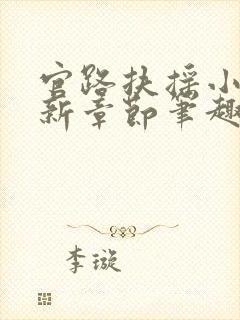 官路扶摇小
新章节笔趣
李璇